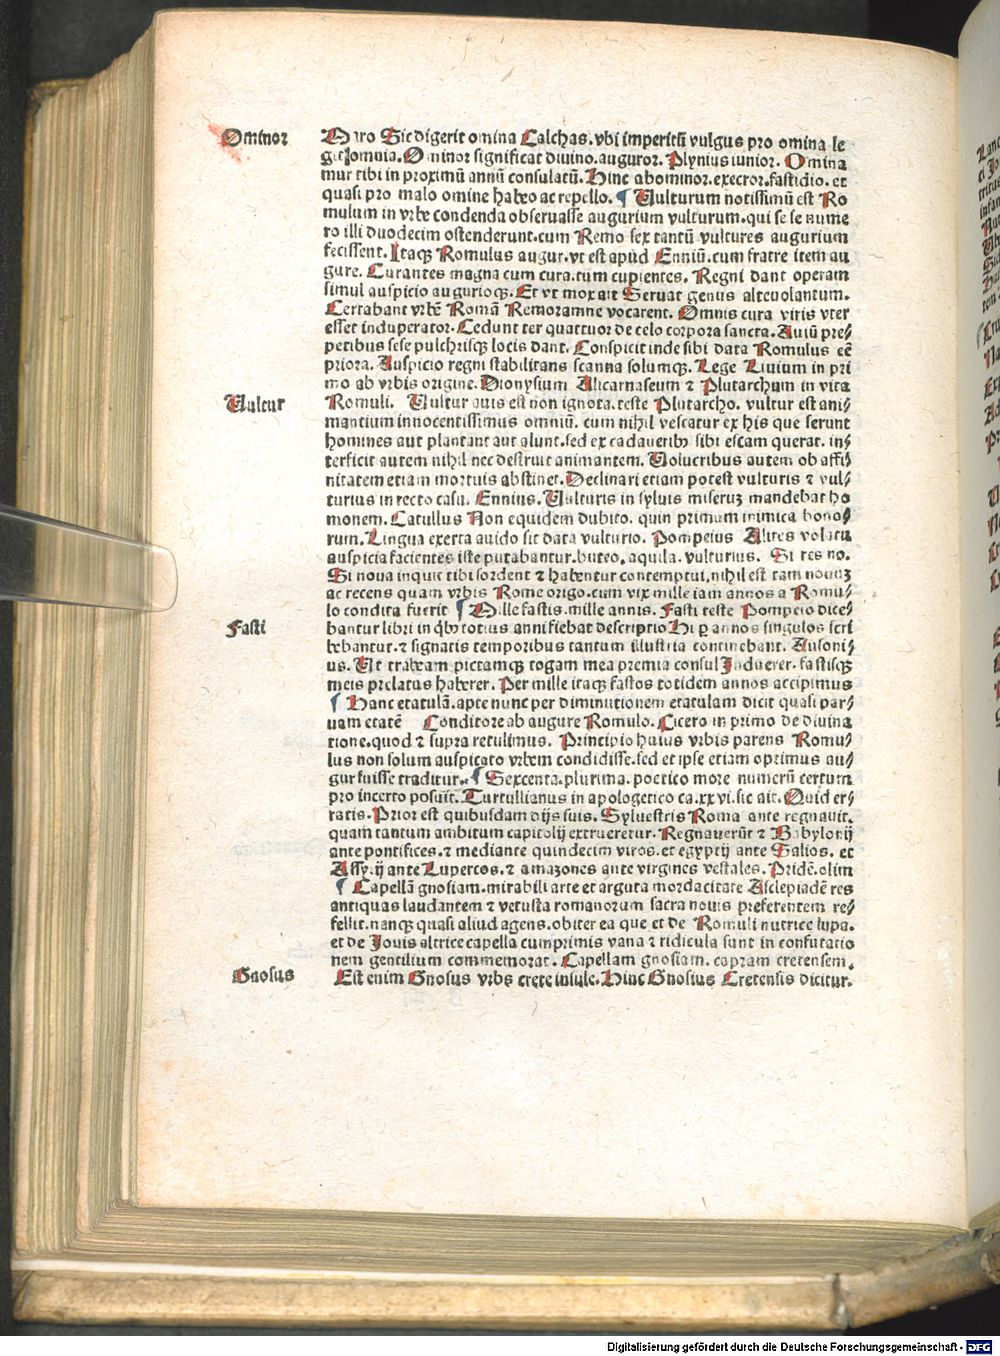 Ominor
Maro Sic digerit omina Calchas. vbi imperitū vulgus pro omina le
git somnia. Ominor significat diuino. auguror. Plynius iunior. Omina
mur tibi in proximū annū consulatū. Hinc abominor. execror. fastidio. et
quasi pro malo omine habeo ac repello. ¶ Uulturum notissimū est Ro
mulum in vrbe condenda obseruasse augurium vulturum. qui se se nume
ro illi duodecim ostenderunt. cum Remo sex tantū vultures augurium
fecissent. Itaqꝫ Romulus augur. vt est apud Enniū. cum fratre item au
gure. Curantes magna cum cura. tum cupientes. Regni dant operam
simul auspicio augurioqꝫ. Et vt mox ait Seruat genus alteuolantum.
Certabant vrbē Romā Remoramne vocarent. Omnis cura viris vter
esset induperator. Cedunt ter quattuor de celo corpora sancta. Auiū pre⸗
petibus sese pulchrisqꝫ locis dant. Conspicit inde sibi data Romulus eē
priora. Auspicio regni stabilitans scanna solumqꝫ. Lege Liuium in pri
mo ab vrbis origine. Dionysium Alicarnaseum ⁊ Plutarchum in vita
Uultur
Romuli. Uultur auis est non ignota. teste Plutarcho. vultur est ani⸗
mantium innocentissimus omniū. cum nihil vescatur ex his que serunt
homines aut plantant aut alunt. sed ex cadaueribꝫ sibi escam querat. in⸗
terficit autem nihil nec destruit animantem. Uolucribus autem ob affi⸗
nitatem etiam mortuis abstinet. Declinari etiam potest vulturis ⁊ vul⸗
turius in recto casu. Ennius. Uulturis in syluis miseruꝫ mandebat ho
monem. Catullus Non equidem dubito. quin primum inimica bono⸗
rum. Lingua exerta auido sit data vulturio. Pompeius Alites volatu
auspicia facientes iste putabantur. buteo. aquila. vulturius. Si res no.
Si noua inquit tibi sordent ⁊ habentur contemptui. nihil est tam nouuꝫ
ac recens quam vrbis Rome origo. cum vix mille iam annos a Romu⸗
lo condita fuerit ¶ Mille fastis. mille annis. Fasti teste Pompeio dice⸗
Fasti
bantur libri in qͥbꝫ totius anni fiebat descriptio Hi ꝑ annos singulos scri
bebantur. ⁊ signatis temporibus tantum illustria continebant. Ausoni⸗
us. Ut trabeam pictamqꝫ togam mea premia consul Induerer. fastisqꝫ
meis prelatus haberer. Per mille itaqꝫ fastos totidem annos accipimus
¶ Hanc etatulā. apte nunc per diminutionem etatulam dicit quasi par⸗
uam etatē Conditore ab augure Romulo. Cicero in primo de diuina
tione. quod ⁊ supra retulimus. Principio huius vrbis parens Romu⸗
lus non solum auspicato vrbem condidisse. sed et ipse etiam optimus au⸗
gur fuisse traditur. ¶ Sexcenta. plurima. poetico more numerū certum
pro incerto posuit. Turtullianus in apologetico ca. xxvi. sic ait. Quid er⸗
ratis. Prior est quibusdam dijs suis. Syluestris Roma ante regnauit.
quam tantum ambitum capitolij extrueretur. Regnauerūt ⁊ Babylonij
ante pontifices. ⁊ mediante quindecim viros. et egyptij ante Salios. et
Assyrij ante Lupercos. ⁊ amazones ante virgines vestales. Pridē. olim
¶ Capellā gnosiam. mirabili arte et arguta mordacitate Asclepiadē res
antiquas laudantem ⁊ vetusta romanorum sacra nouis preferentem re⸗
fellit. nanqꝫ quasi aliud agens. obiter ea que et de Romuli nutrice lupa.
et de Iouis altrice capella cumprimis vana ⁊ ridicula sunt in confutatio
nem gentilium commemorat. Capellam gnosiam. capram cretensem.
Gnosus
Est enim Gnosus vrbs crete insule. Hinc Gnosius Cretensis dicitur.
Digitalisierung gefördert durch die Deutsche Forschungsgemeinschaft - DFG